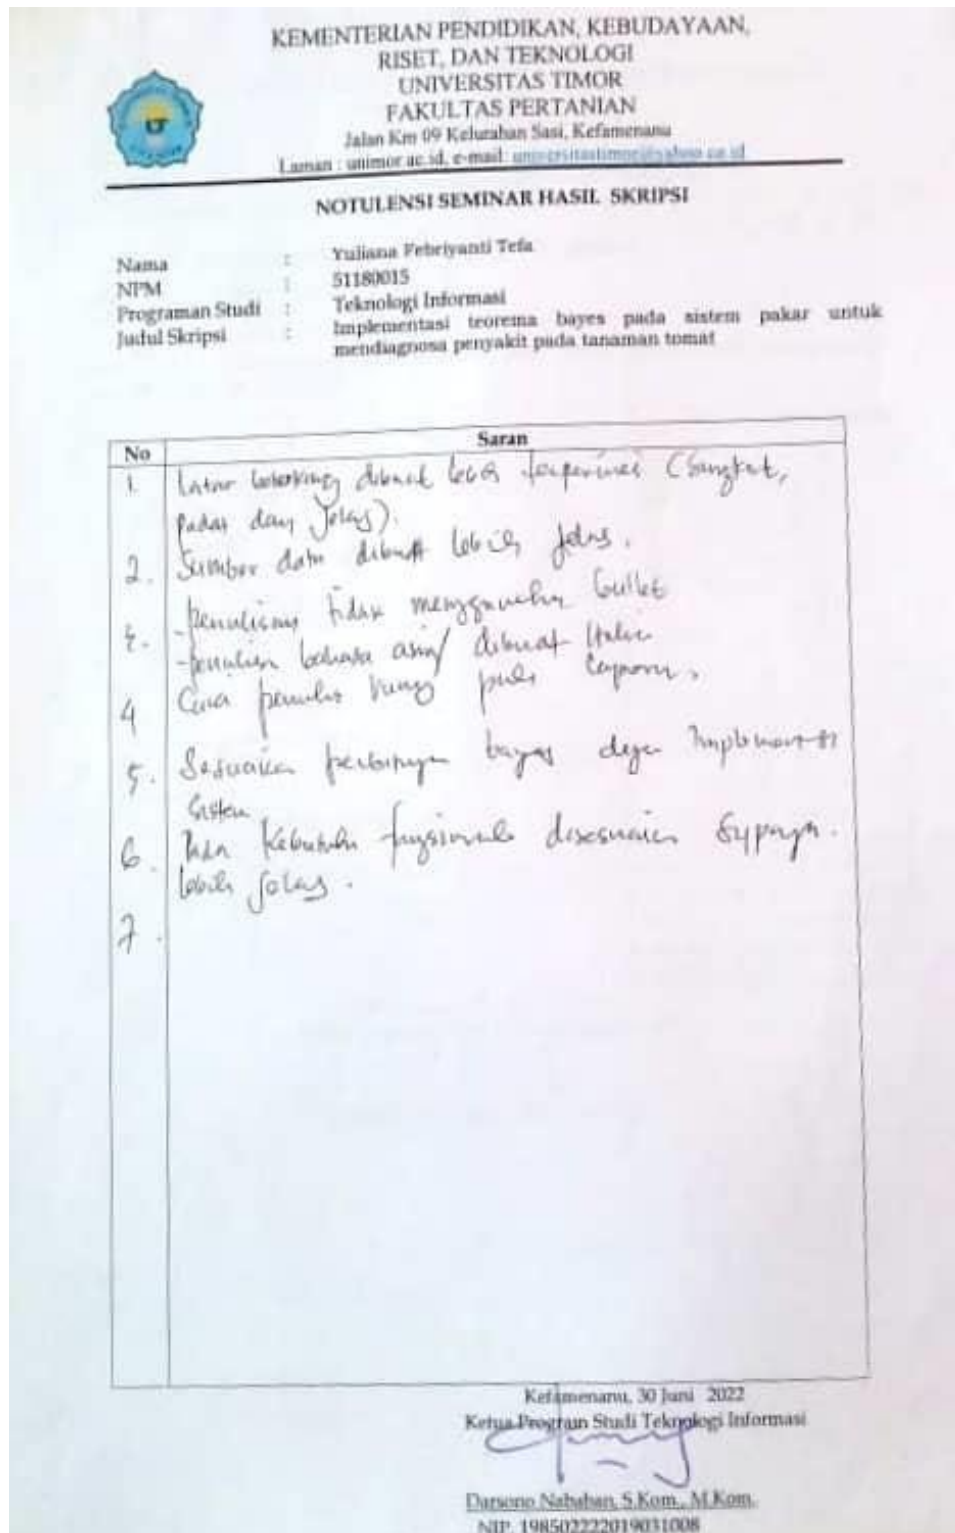 KEMENTERIAN PENDIDIKAN, KEBUDAYAAN,
RISET, DAN TEKNOLOGI
UNIVERSITAS TIMOR
FAKULTAS PERTANIAN
Jalan Km 09 Kelurahan Sasi, Kefamenanu
Laman : unimor ac.id, e-mail: universitastimor@yahoo.co.id
NOTULENSI SEMINAR HASIL SKRIPSI
Nama : Yuliana Febriyanti Tefa
NPM : 51180015
Programan Studi : Teknologi Informasi
Judul Skripsi : Implementasi teorema bayes pada sistem pakar untuk
mendiagnosa penyakit pada tanaman tomat
No Saran
1. latar belakang dibuat lebih terperinci (Singkat,
padat dan jelas).
2. Sumber data dibuat lebih jelas.
- penulisan tidak menggunakan bullet
- penulisan bahasa asing dibuat Italic
4 Cara penulis
5. Sesuaikan bayes dengan Implementasi
Sistem
6. Pada Kebutuhan fungsional disesuaikan supaya
lebih jelas.
7.
Kefamenanu, 30 Juni 2022
Ketua Program Studi Teknologi Informasi
Darsono Nababan, S.Kom., M.Kom.
NIP. 198502222019031008